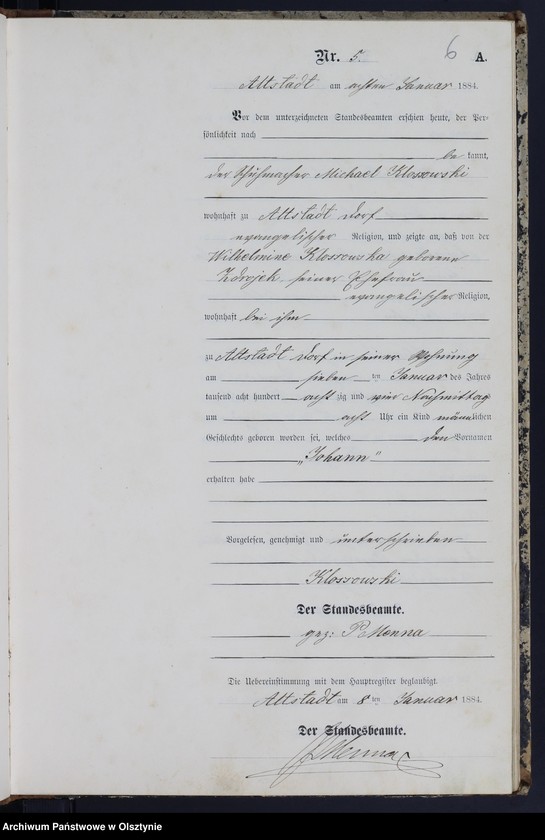 6
Nr. 5. A.
Altstadt am achten Januar 1884.
Vor dem unterzeichneten Standesbeamten erschien heute, der Per-
sönlichkeit nach
be kannt,
der Schuhmacher Michael Klossowski
wohnhaft zu Altstadt Dorf
evangelischer Religion, und zeigte an, daß von der
Wilhelmine Klossowska geborene
Zdrojek seiner Ehefrau
evangelischer Religion,
wohnhaft bei ihm
zu Altstadt Dorf in seiner Wohnung
am sieben ten Januar des Jahres
tausend acht hundert acht zig und vier Nachmittag
um acht Uhr ein Kind männlichen
Geschlechts geboren worden sei, welches den Vornamen
„Johann"
erhalten habe
Vorgelesen, genehmigt und unterschrieben
Klossowski
Der Standesbeamte.
gez: P Menna
Die Uebereinstimmung mit dem Hauptregister beglaubigt.
Altstadt am 8 ten Januar 1884.
Der Standesbeamte.
Menna
Archiwum Państwowe w Olsztynie